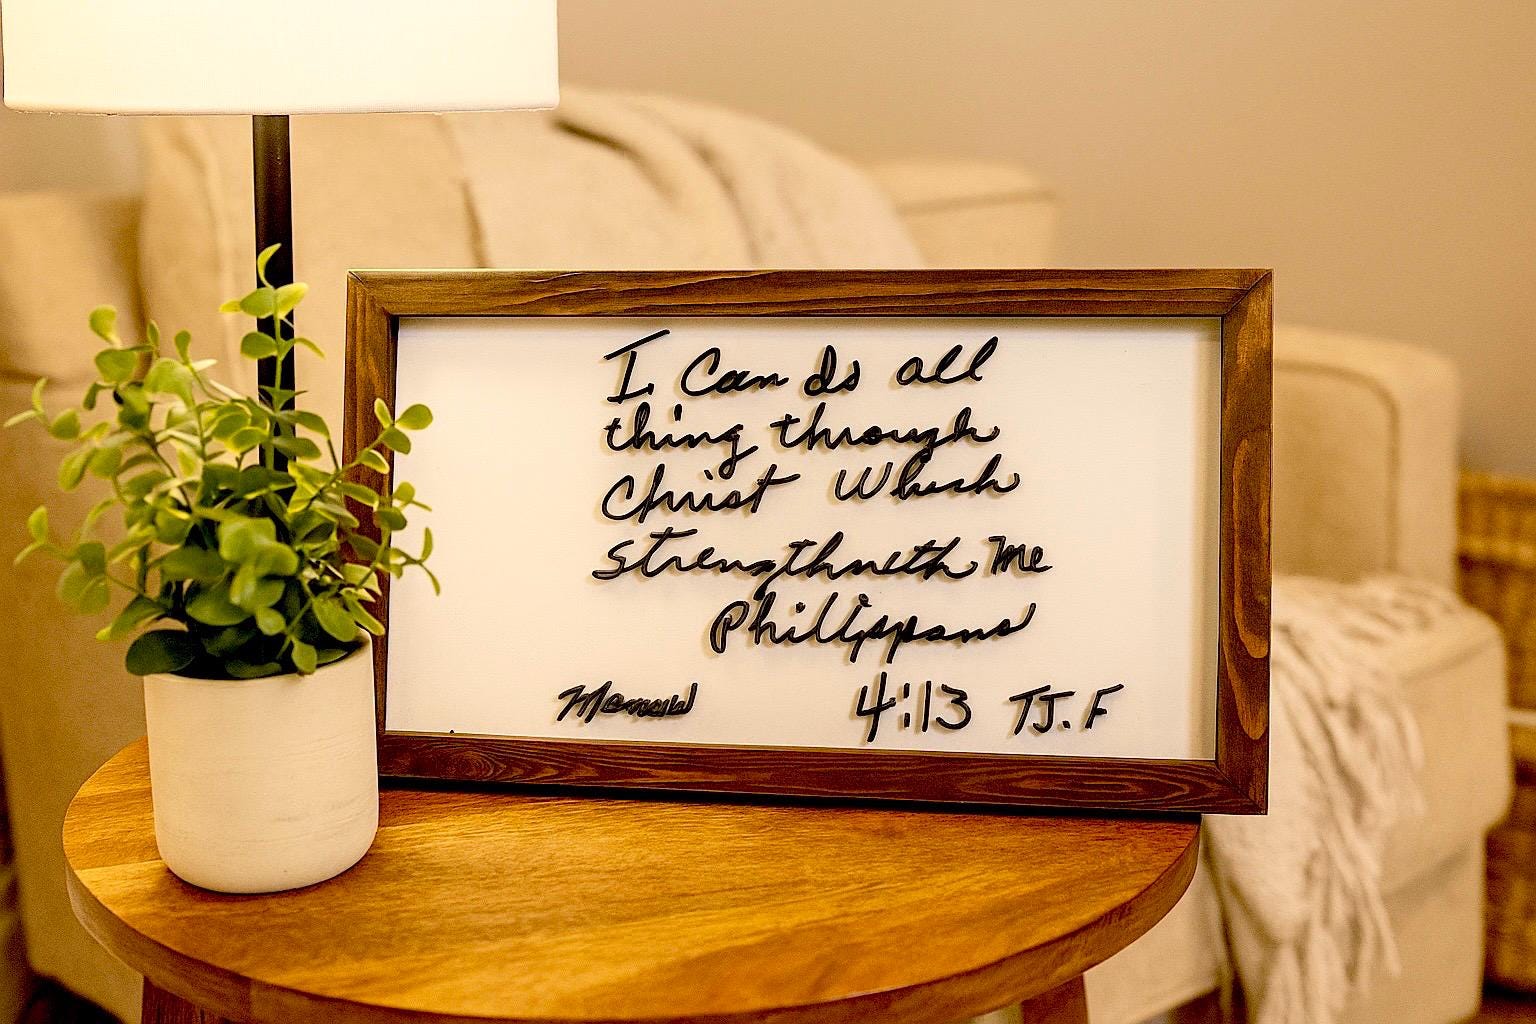 I. Can do all
thing through
Christ Which
strengthneth Me
Phillippans
4:13 TJ. F
Mamaw